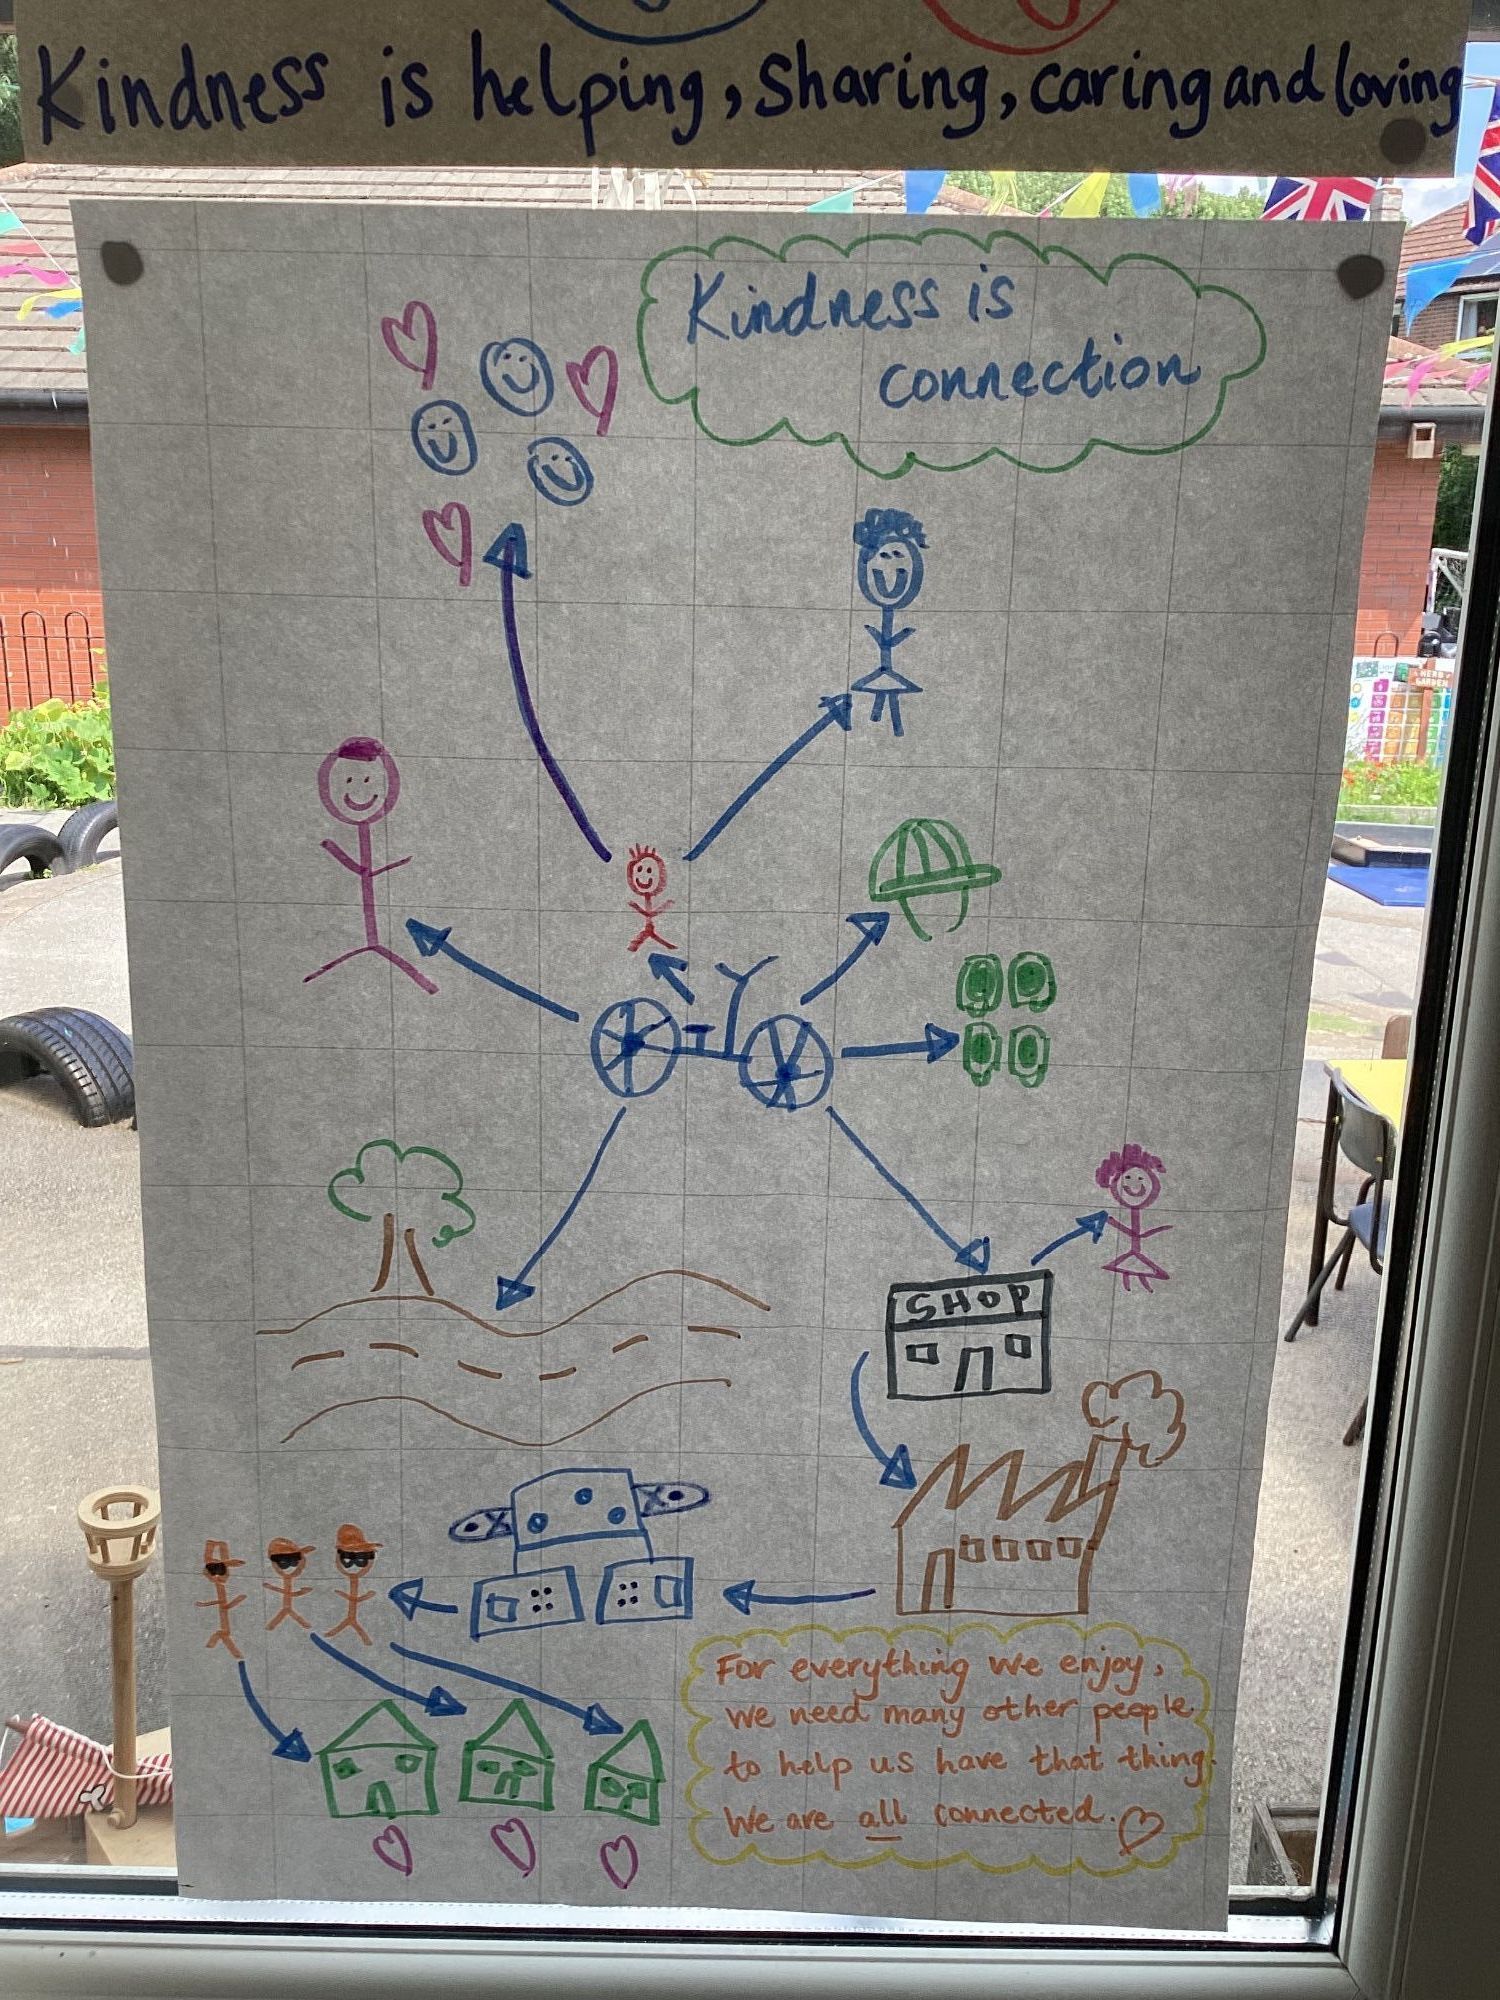 Kindness is helping, sharing, caring and loving
Kindness is
connection
HERB
GARDEN
SHOP
For everything we enjoy,
we need many other people
to help us have that thing.
We are all connected.